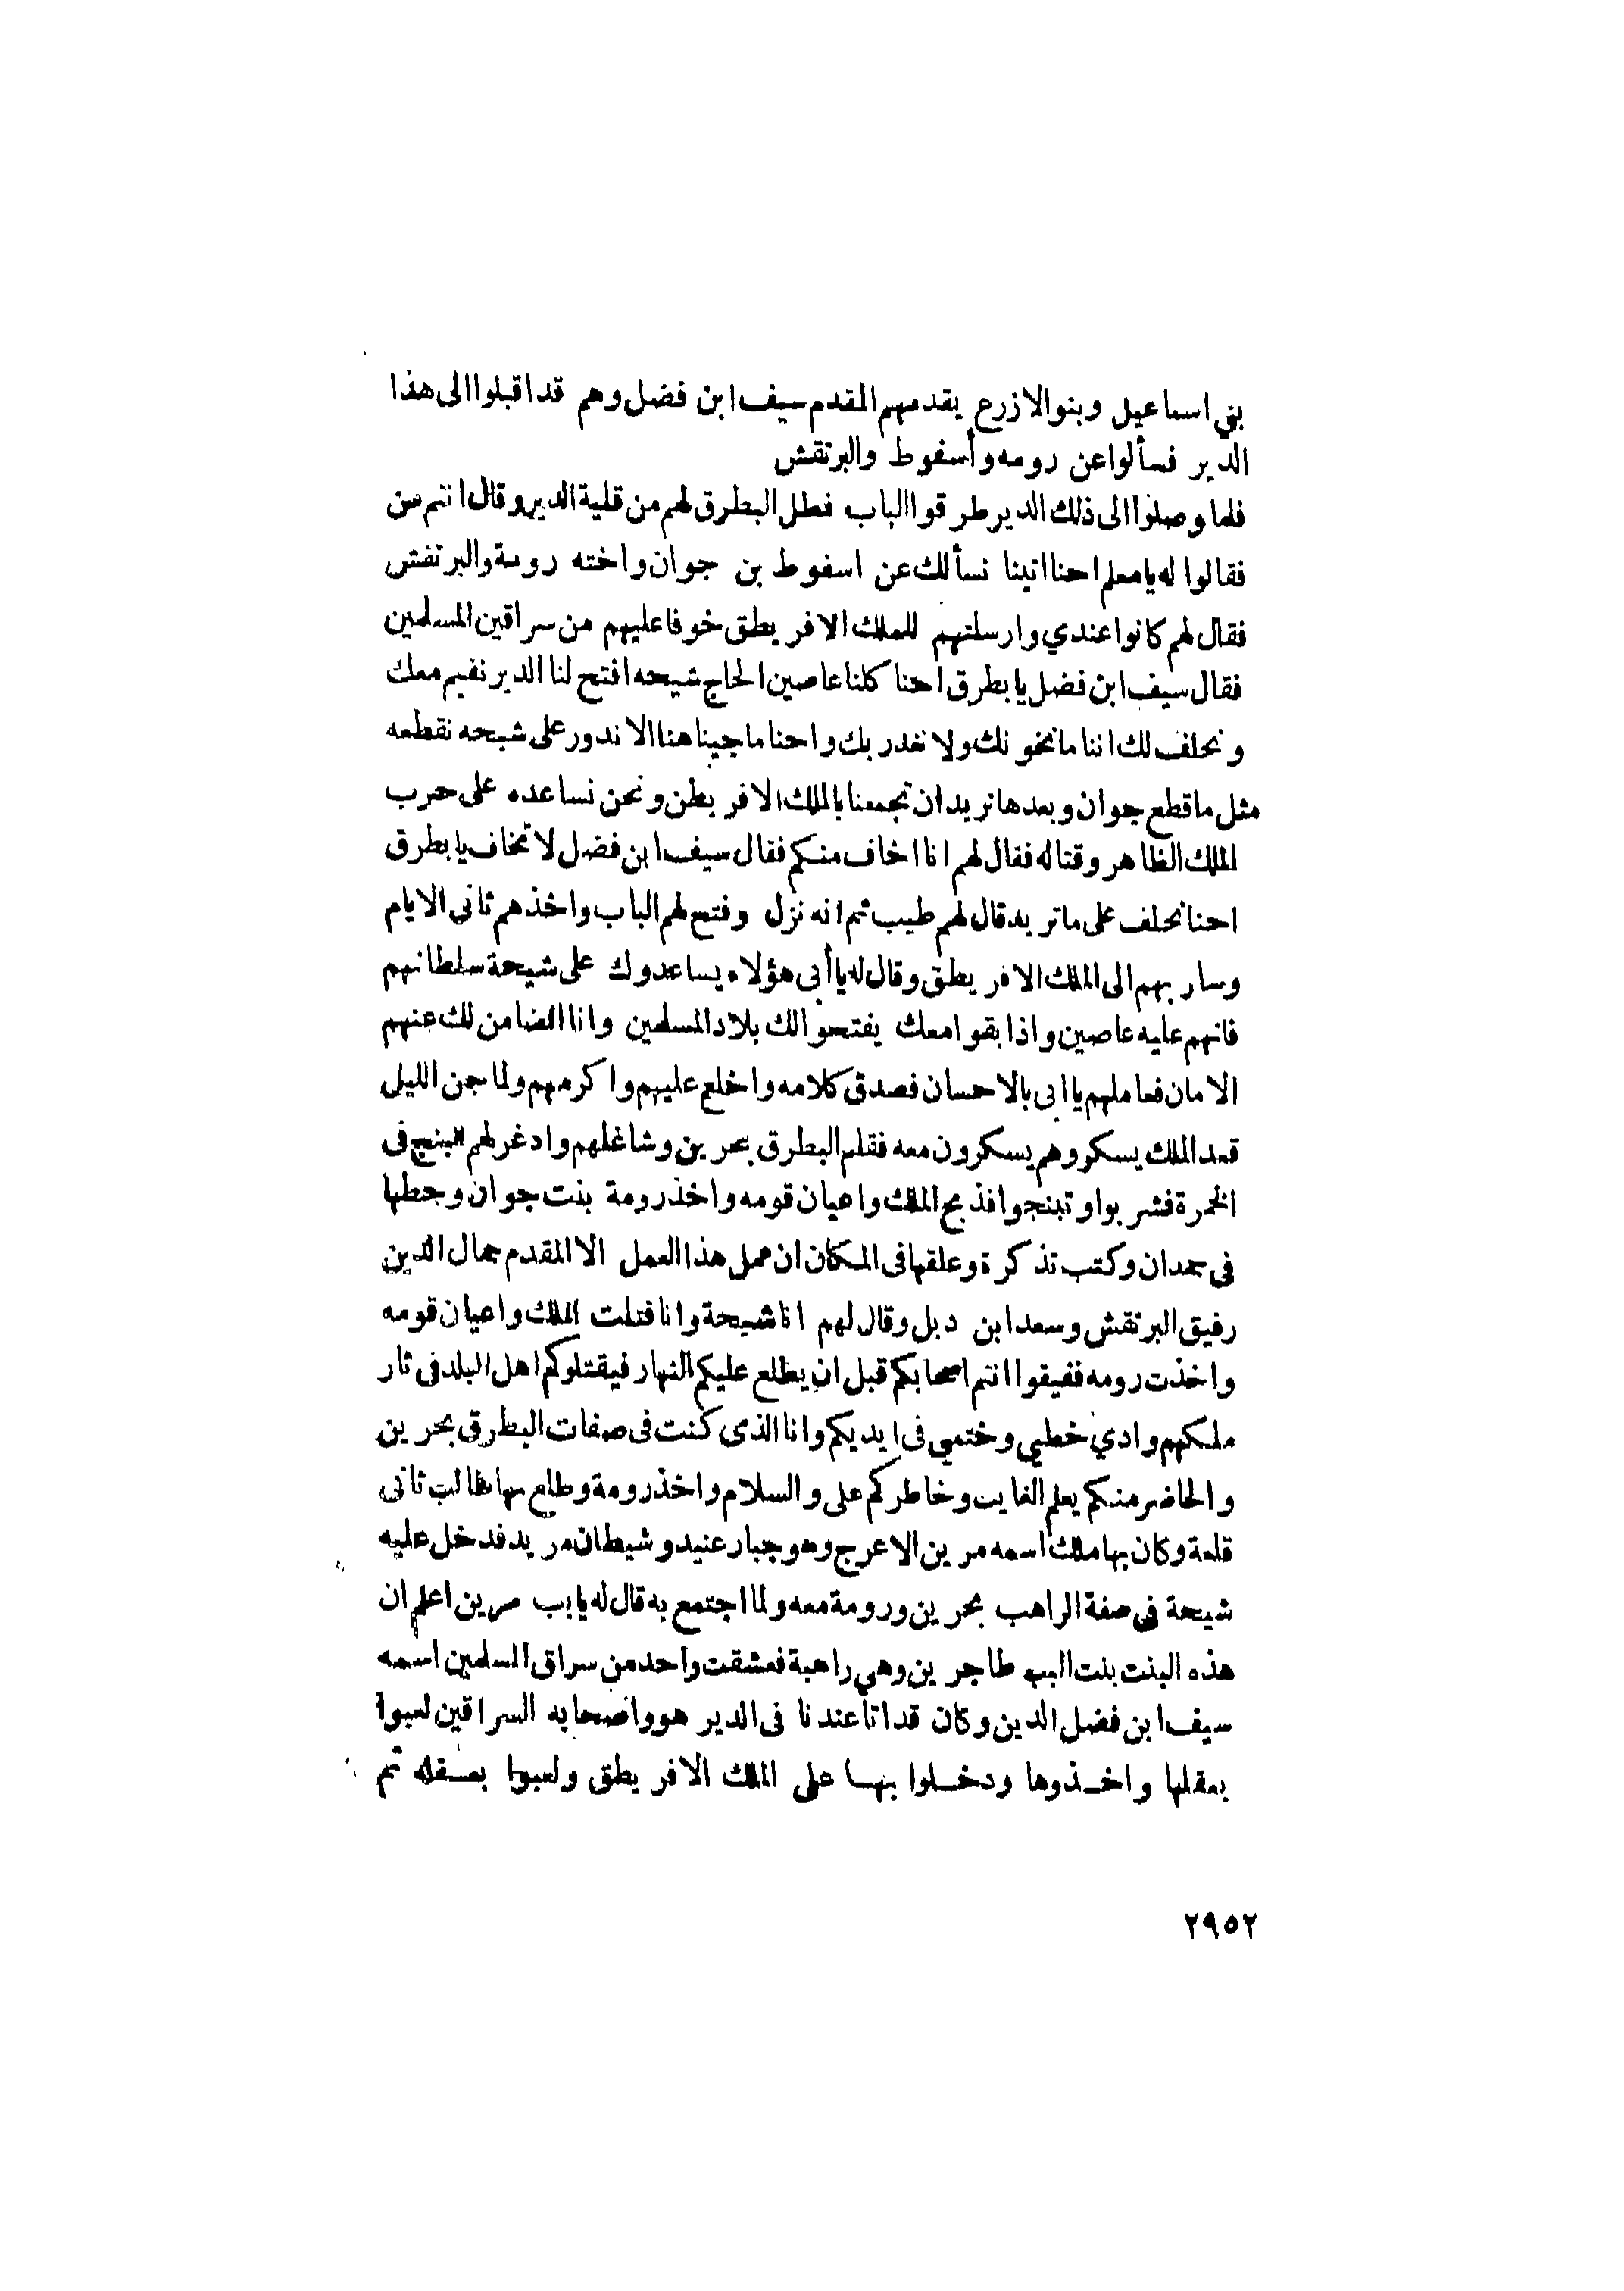 بني اسماعيل وبنو الازرع يقدمهم المقدم سيف ابن فضل وهم قد اقبلوا الى هذا
الدير فسألوا عن رومه وأسفوط والبرتقش
فلما وصلوا الى ذلك الدير طرقوا الباب فطل البطرق لهم من قلية الدير وقال انتم من
فقالوا له يا معلم احنا اتينا نسألك عن اسفوط بن جوان واخته رومة والبرتقش
فقال لهم كانوا عندي وارسلتهم للملك الافريطق خوفا عليهم من سراقين المسلمين
فقال سيف ابن فضل يا بطرق احنا كلنا عاصين الحاج شيحه افتح لنا الدير نقيم معك
ونحلف لك اننا ما نخونك ولا نغدر بك واحنا ما جينا هنا الا ندور على شيحه نقطعه
مثل ما قطع جوان وبعدها نريد ان تجمعنا بالملك الافريطن ونحن نساعده على حرب
الملك الظاهر وقتاله فقال لهم انا اخاف منكم فقال سيف ابن فضل لا تخاف يا بطرق
احنا نحلف على ما تريد قال لهم طيب ثم انه نزل وفتح لهم الباب واخذهم ثاني الايام
وسار بهم الى الملك الافريطق وقال له يا أبي هؤلاء يساعدوك على شيحة سلطانهم
فانهم عليه عاصين واذا بقوا معك يفتحوا لك بلاد المسلمين وانا الضامن لك عنهم
الامان فعاملهم يا ابي بالاحسان فصدق كلامه واخلع عليهم واكرمهم ولما جن الليل
قعد الملك يسكر وهم يسكرون معه فقلم البطرق بحرين وشاغلهم وادغر لهم البنج في
الخمرة فشربوا وتبنجوا فذبح الملك واعيان قومه واخذ رومة بنت جوان وحطها
في جمدان وكتب تذكرة وعلقها في المكان ان عمل هذا العمل الا المقدم جمال الدين
رفيق البرتقش وسعد ابن دبل وقال لهم انا شيحة وانا قتلت الملك واعيان قومه
واخذت رومه ففيقوا انتم اصحابكم قبل ان يطلع عليكم النهار فيقتلوكم اهل البلد في ثار
ملكهم وادي خطي وختمي في ايديكم وانا الذي كنت في صفات البطرق بحرين
والحاضر منكم يعلم الغايب وخاطركم علي والسلام واخذ رومة وطلع بها طالب ثاني
قلعة وكان بها ملك اسمه مرين الاعرج وهو جبار عنيد وشيطان مريد فدخل عليه
شيحة في صفة الراهب بحرين ورومة معه ولما اجتمع به قال له يا بب مرين اعلم ان
هذه البنت بنت البب طاجرين وهي راهبة فعشقت واحد من سراق المسلمين اسمه
سيف ابن فضل الدين وكان قد اتا عندنا في الدير هو واصحابه السراقين لعبوا
بعقلها واخذوها ودخلوا بها على الملك الافريطق ولعبوا بعقله ثم
٢٩٥٢